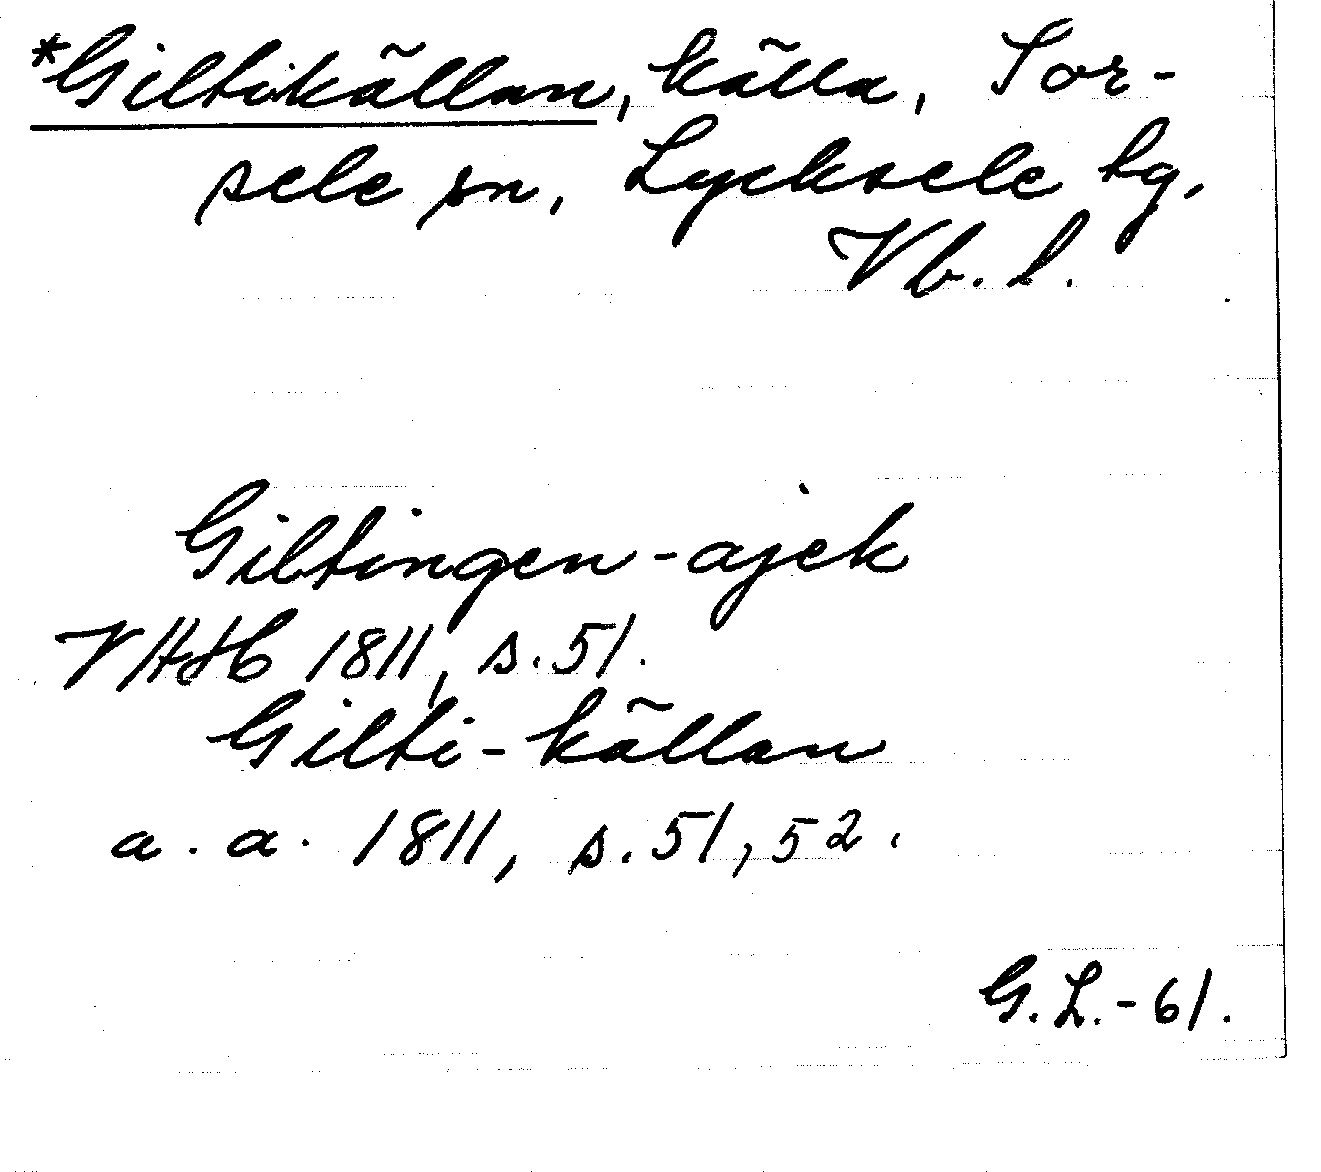 *Giltikällan, källa, Sor-
sele sn, Lycksele tg,
Vb. l.
Giltingen-ajek
VHAH 1811, s. 51.
Gilti-källan
a. a. 1811, s. 51, 52.
G. L. - 61.